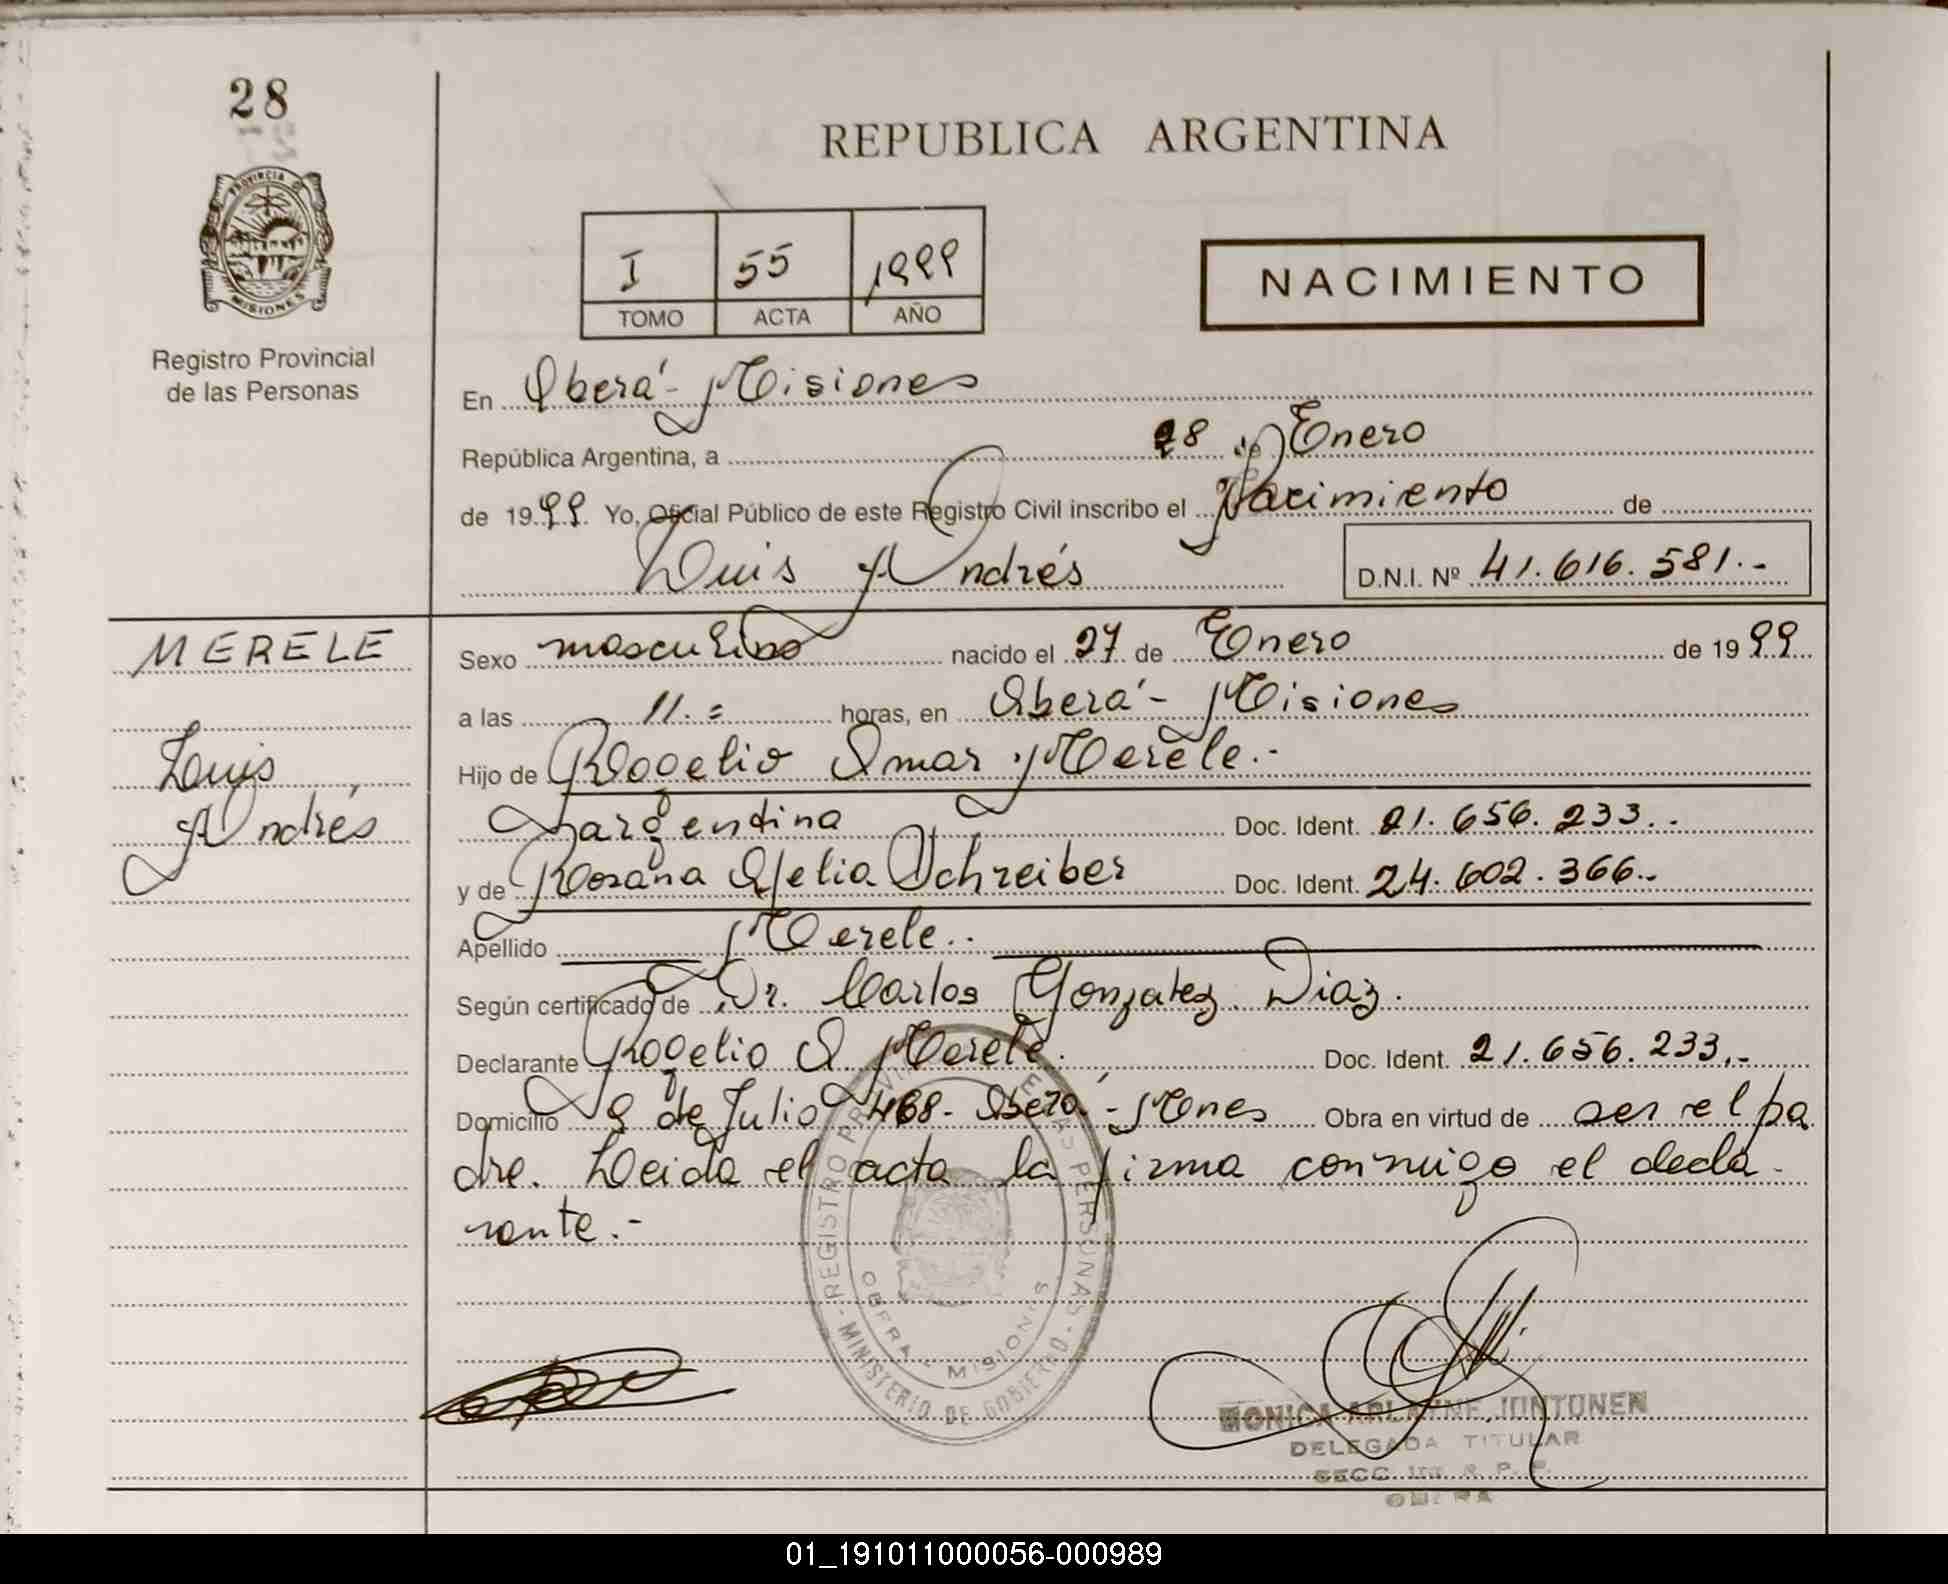 28
REPUBLICA ARGENTINA
PROVINCIA D
MISIONES
Registro Provincial
de las Personas
I 55 1999
TOMO ACTA AÑO
NACIMIENTO
En Oberá - Misiones
República Argentina, a 28 de Enero
de 1999. Yo, Oficial Público de este Registro Civil inscribo el Nacimiento de
Luis Andrés
D.N.I. Nº 41.616.581.-
MERELE
Luis
Andrés
Sexo masculino nacido el 27 de Enero de 1999
a las 11.= horas, en Oberá - Misiones
Hijo de Rogelio Omar Merele.-
argentina Doc. Ident. 21.656.233.-
y de Rosana Ofelia Schreiber Doc. Ident. 24.602.366.-
Apellido Merele.-
Según certificado de Dr. Carlos Gonzalez Diaz.
Declarante Rogelio O. Merele. Doc. Ident. 21.656.233.-
Domicilio 9 de Julio 468- Oberá - Mnes Obra en virtud de ser el pa
dre. Leida el acta la firma conmigo el decla-
rante.-
REGISTRO PROVINCIAL DE LAS PERSONAS
MINISTERIO DE GOBIERNO
OBERA - MISIONES
MONICA ARLAYNE JUNTUNEN
DELEGADA TITULAR
SECC. R. P. P.
OBERA
01_191011000056-000989